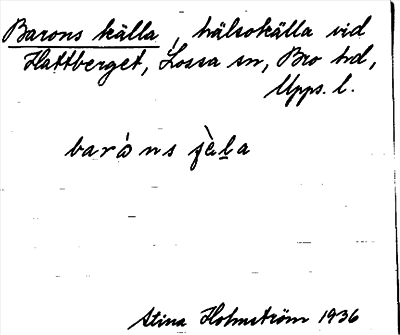 Barons källa, hälsokälla vid
Hattberget, Lossa sn, Bro hd,
Upps. l.
barón s
Stina Holmström 1936